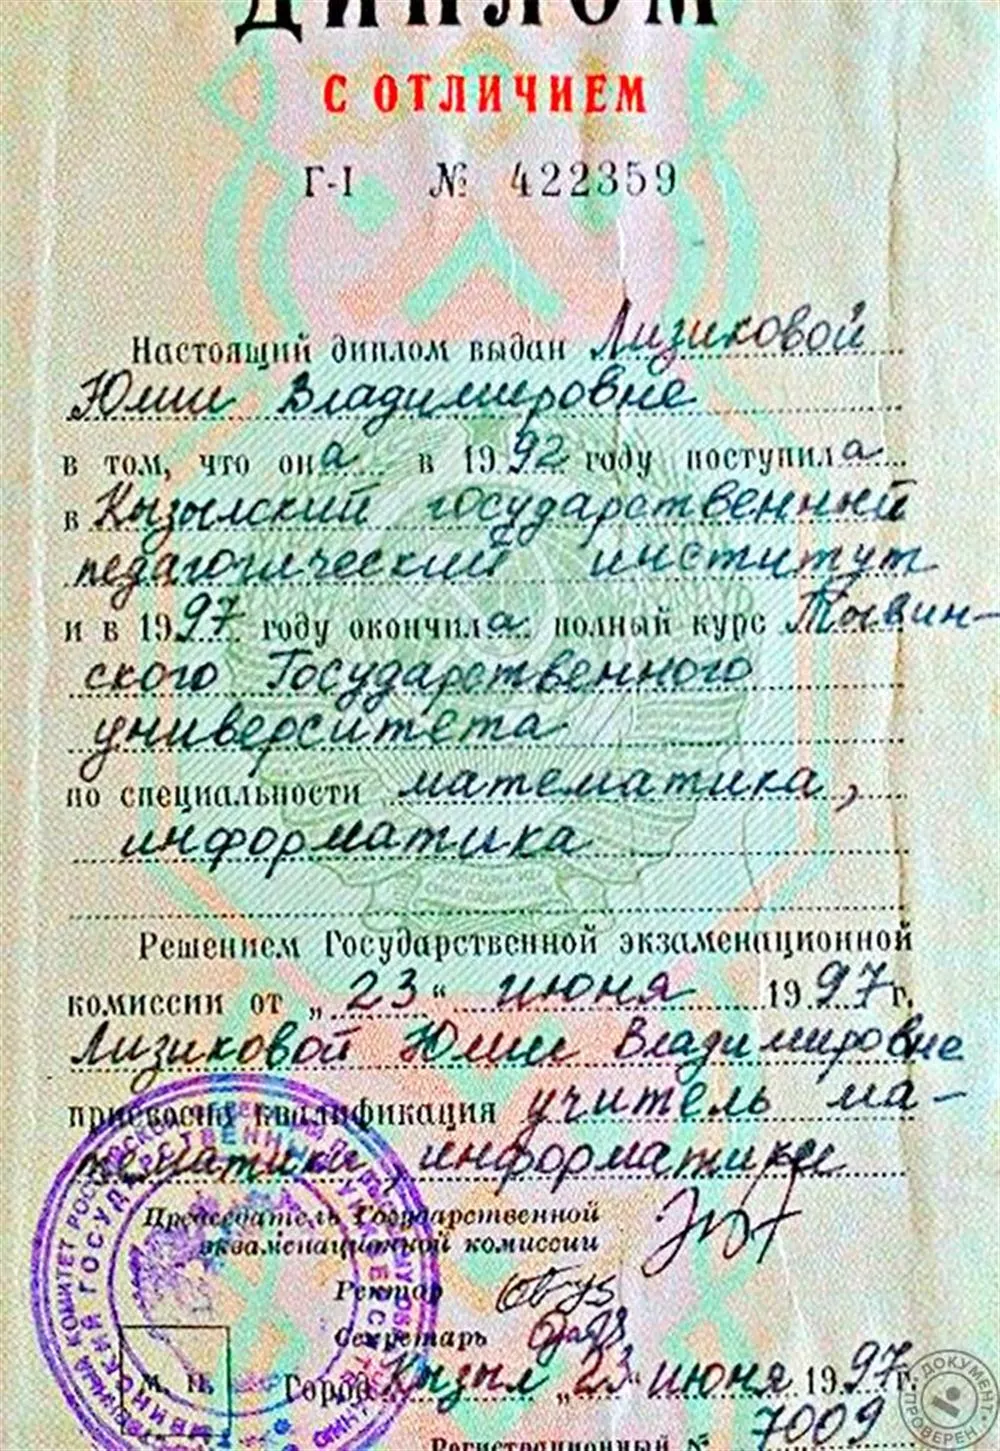 ДИПЛОМ
С ОТЛИЧИЕМ
Г-I № 422359
Настоящий диплом выдан Лизиковой
Юлии Владимировне
в том, что она в 1992 году поступила
в Кызылский государственный
педагогический институт
и в 1997 году окончила полный курс Тывин-
ского Государственного
университета
по специальности математика,
информатика
Решением Государственной экзаменационной
комиссии от „23“ июня 1997 г.
Лизиковой Юлии Владимировне
присвоена квалификация учитель ма-
тематики, информатики
Председатель Государственной
экзаменационной комиссии
Ректор
Секретарь
М. П. Город Кызыл „23“ июня 1997 г.
Регистрационный № 7009
ДОКУМЕНТ ПРОВЕРЕН